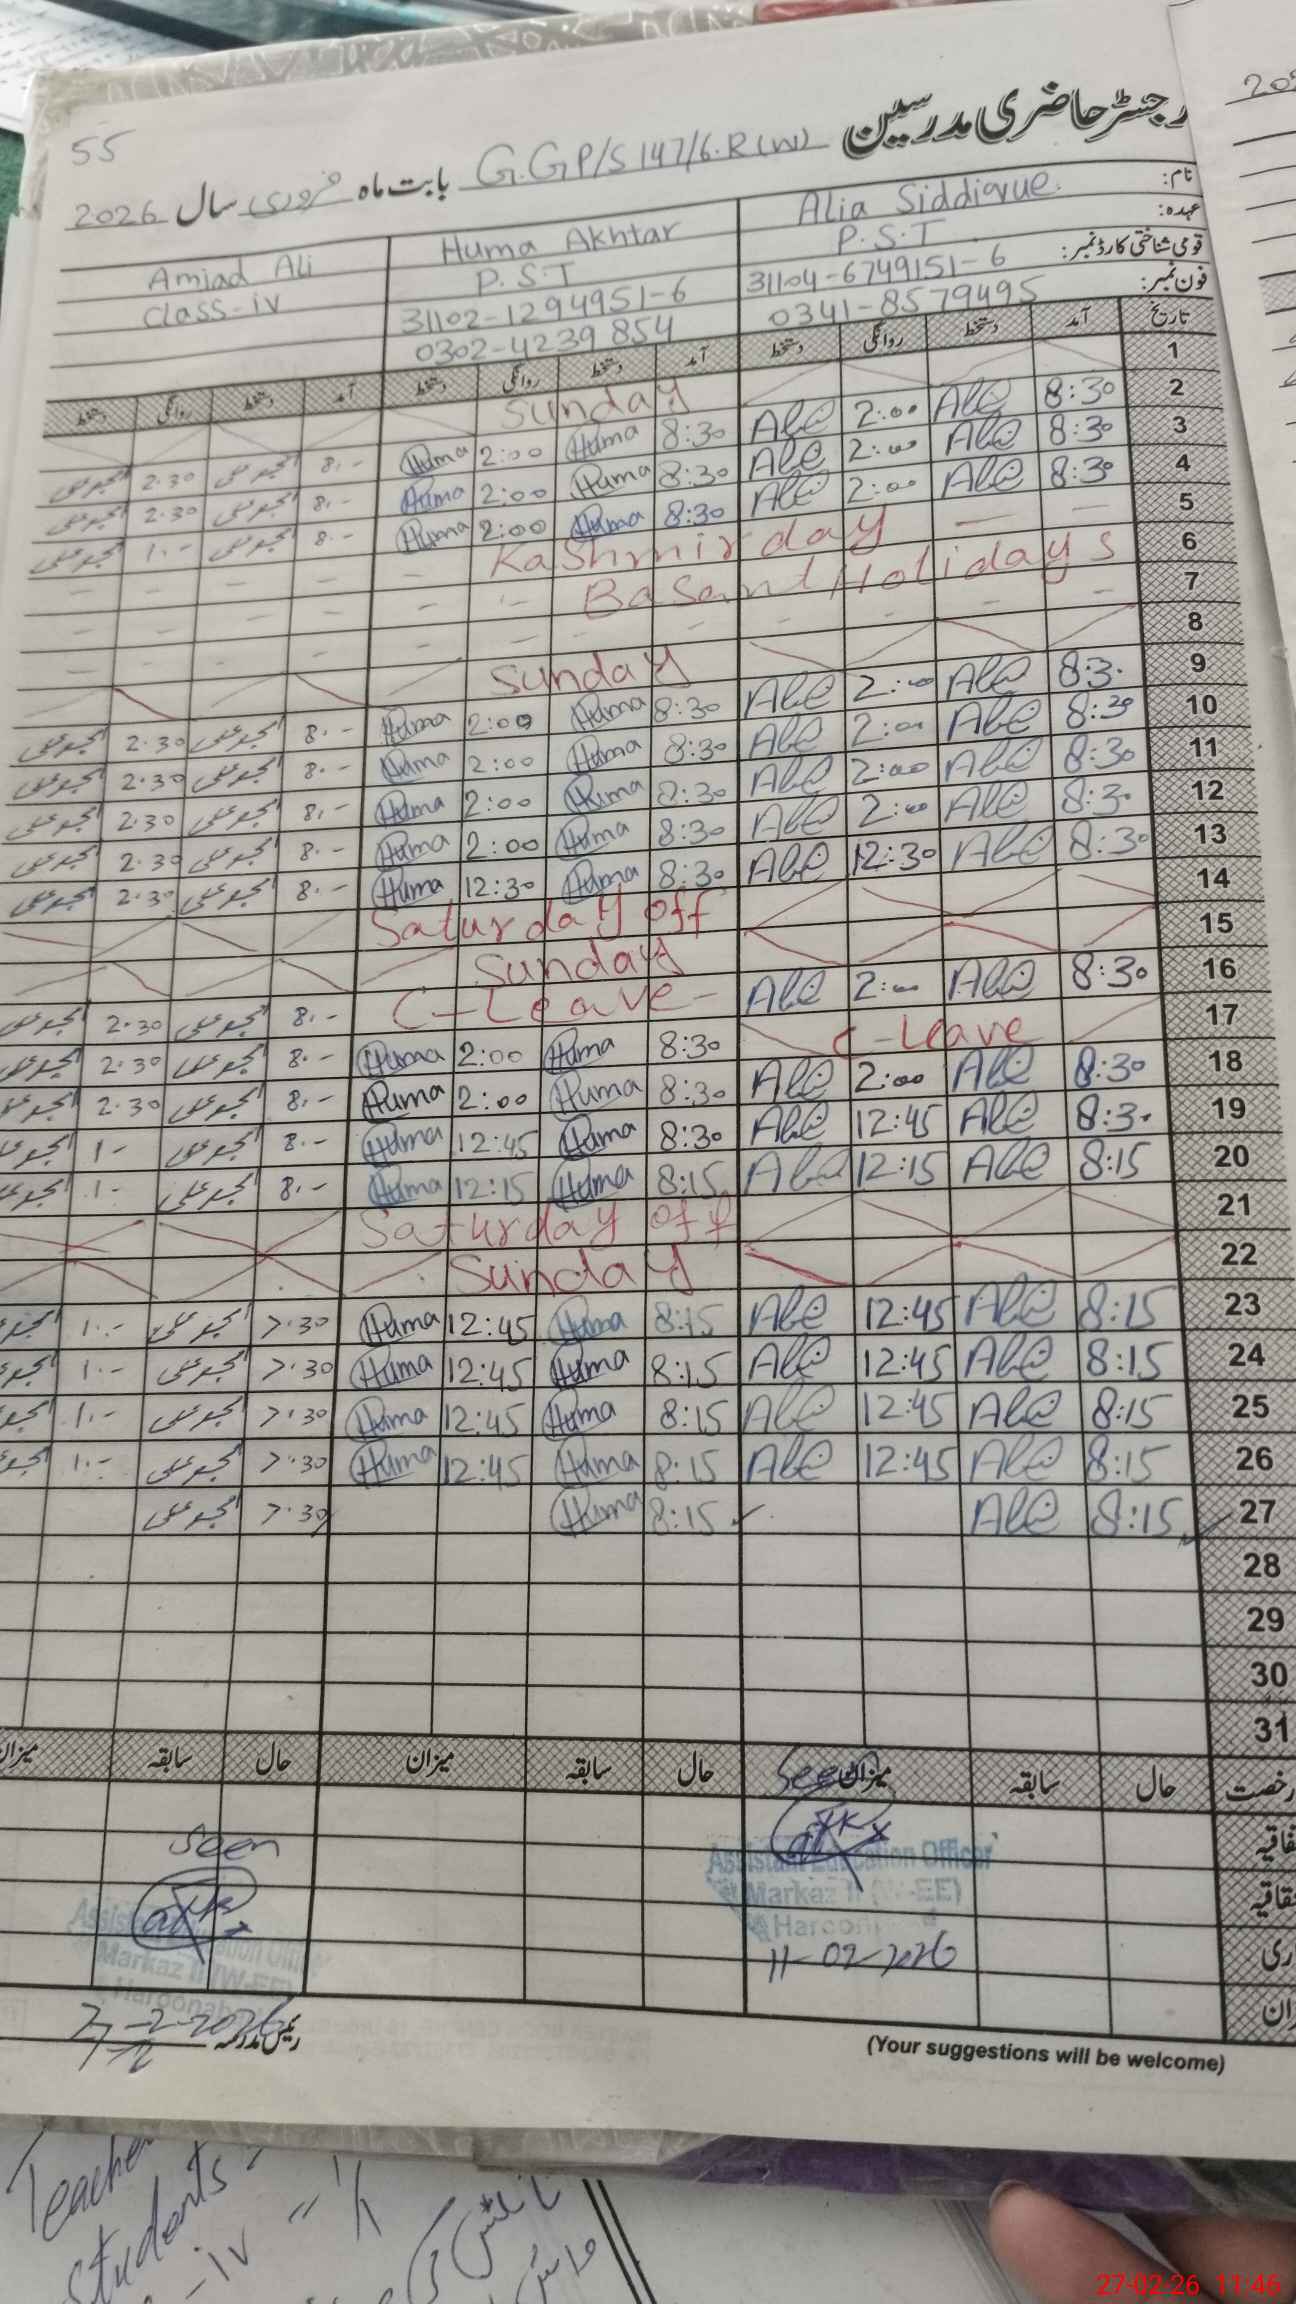 رجسٹر حاضری مدرسین G.GP/S 147/6.R(W) بابت ماہ فروری سال 2026
55
نام: Alia Siddique Huma Akhtar Amjad Ali
عہدہ: P.S.T P.S.T Class-iv
قومی شناختی کارڈ نمبر: 31104-6749151-6 31102-1294951-6
فون نمبر: 0341-8579495 0302-4239854
تاریخ آمد دستخط روانگی دستخط آمد دستخط روانگی دستخط آمد دستخط روانگی دستخط
1 Sunday
2 8:30 2:00 8:30 Huma 2:00 Huma 8.- امجد علی 2.30 امجد علی
3 8:30 2:00 8:30 Huma 2:00 Huma 8.- امجد علی 2.30 امجد علی
4 8:30 2:00 8:30 Huma 2:00 Huma 8.- امجد علی 1.- امجد علی
5 - - Kashmir day - - - - -
6 Basant Holidays - - - -
7 - - - - - - - - -
8 Sunday
9 8:30 2:00 8:30 Huma 2:00 Huma 8.- امجد علی 2.30 امجد علی
10 8:30 2:00 8:30 Huma 2:00 Huma 8.- امجد علی 2.30 امجد علی
11 8:30 2:00 8:30 Huma 2:00 Huma 8.- امجد علی 2.30 امجد علی
12 8:30 2:00 8:30 Huma 2:00 Huma 8.- امجد علی 2.30 امجد علی
13 8:30 12:30 8:30 Huma 12:30 Huma 8.- امجد علی 2.30 امجد علی
14 Saturday off
15 Sunday
16 8:30 2:00 C-Leave- 8.- امجد علی 2.30 امجد علی
17 C-Leave 8:30 Huma 2:00 Huma 8.- امجد علی 2.30 امجد علی
18 8:30 2:00 8:30 Huma 2:00 Huma 8.- امجد علی 2.30 امجد علی
19 8:30 12:45 8:30 Huma 12:45 Huma 8.- امجد علی 1.-
20 8:15 12:15 8:15 Huma 12:15 Huma 8.- امجد علی 1.-
21 Saturday off
22 Sunday
23 8:15 12:45 8:15 Huma 12:45 Huma 7.30 امجد علی 1.-
24 8:15 12:45 8:15 Huma 12:45 Huma 7.30 امجد علی 1.-
25 8:15 12:45 8:15 Huma 12:45 Huma 7.30 امجد علی 1.-
26 8:15 12:45 8:15 Huma 12:45 Huma 7.30 امجد علی 1.-
27 8:15 8:15 Huma 7.30 امجد علی
28
29
30
31
رخصت حال سابقہ میزان حال سابقہ میزان حال سابقہ میزان
Seen
Assistant Education Officer
Markaz II (W-EE)
11-02-2026
Seen
Assistant Education Officer
Markaz II (W-EE)
Haroonabad
رئیس مدرسہ 27-2-2026
(Your suggestions will be welcome)
Teacher
Students
27-02-26 11:46